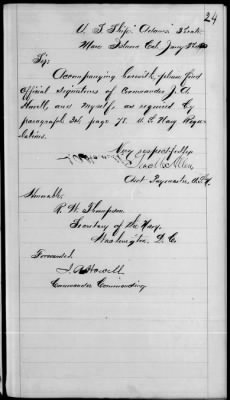 24
U. S. Ship "Adams" 3d rate
Mare Island Cal Jany
Sir;
Accompanying herewith please find
official signatures of Commander J. A.
Howell and myself, as required by
paragraph 34, page 78. U. S. Navy Regu-
lations.
Very respectfully
Asst Paymaster, U.S.N.
Honorable
R. W. Thompson
Secretary of the Navy,
Washington, D. C.
Forwarded.
J. A. Howell
Commander Commanding